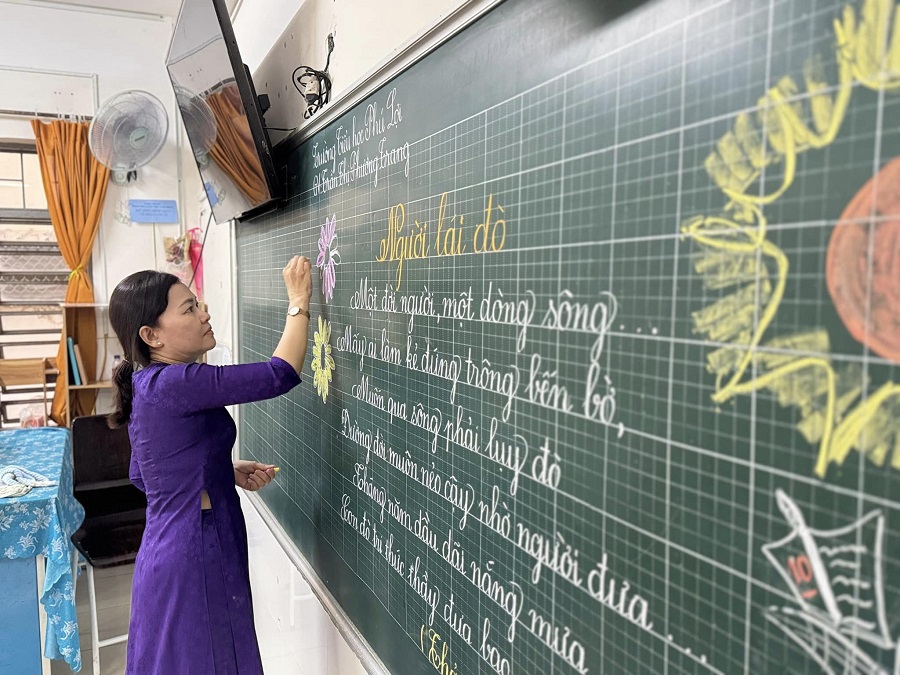 Trường Tiểu học Phú Lợi
GV: Trần Thị Phương Trang
Người lái đò
Một đời người, một dòng sông...
Mấy ai làm kẻ đứng trông bến bờ,
Muốn qua sông phải lụy đò
Đường đời muôn nẻo cậy nhờ người đưa...
Tháng năm dầu dãi nắng mưa
Con đò tri thức thầy đưa bao
10